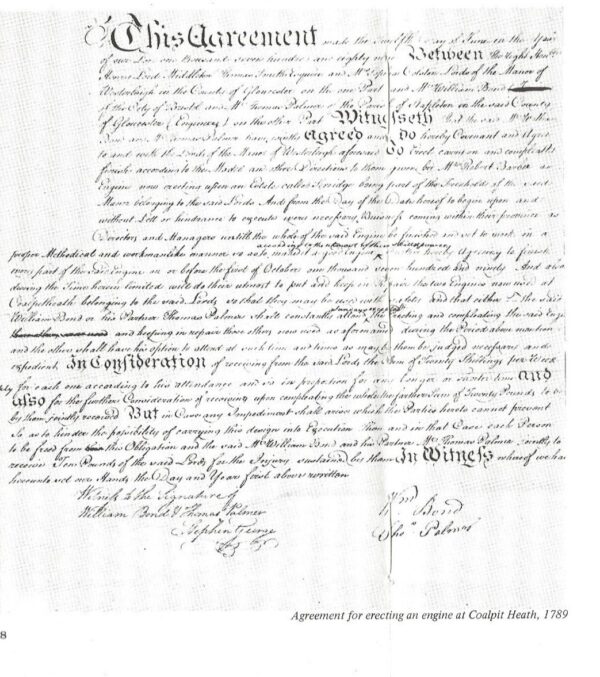 This Agreement made the Twelfth Day of June in the Year
of our Lord one thousand seven hundred and eighty nine Between the Right Honble
Lord Middleton Thomas Smith Esquire and Lords of the Manor of
Westerleigh in the County of Gloucester on the one Part and Mr William Bond
of the City of Bristol and Mr Thomas Palmer of the Parish of Stapleton in the said County
of Gloucester (Engineers) on the other Part Witnesseth that the said Mr William
Bond and Mr Thomas Palmer have Agreed and do hereby Covenant and Agree
to and with the Lords of the Manor of Westerleigh aforesaid to Erect carry on and compleatly
finish according to the Model and other Directions to them given by Mr Robert
Engine now erecting upon an Estate called Serridge being part of the Freeholds of the said
Manor belonging to the said Lords And from the Day of the Date hereof to begin upon and
without Lett or hindrance to execute every necessary Business coming within their province as
Directors and Managers untill the whole of the said Engine be finished and set to work in a
proper Methodical and workmanlike manner so as to make a good Engine hereby Agreeing to finish
every part of the said Engine on or before the first of October one thousand seven hundred and ninety And also
during the Time herein limited will do their utmost to put and keep in Repair the two Engines now used at
Coalpitheath belonging to the said Lords so that they may be used with safety and that either the said
William Bond or his Partner Thomas Palmer shall constantly attend the Erecting and compleating the said Engine
and keeping in repair the others now used as aforesaid during the Period above mentioned
and the other shall have his option to attend at such time and times as may by them be judged necessary and
expedient In Consideration of receiving from the said Lords the Sum of Twenty Shillings per Week
for each one according to his attendance and so in proportion for any longer or shorter time And
also for the further Consideration of receiving upon compleating the whole the farther Sum of Twenty Pounds to be
by them jointly received But in Case any Impediment shall arise which the Parties hereto cannot prevent
so as to hinder the possibility of carrying this design into Execution then and in that Case each Person
to be freed from this Obligation and the said Mr William Bond and his Partner Mr Thomas Palmer jointly to
receive Ten Pounds of the said Lords for the Injury sustained by them In Witness whereof we have
hereunto set our Hands the Day and Year first above written
Witness to the Signature of
William Bond & Thomas Palmer
Stephen George
Wm Bond
Thos Palmer
Agreement for erecting an engine at Coalpit Heath, 1789
8